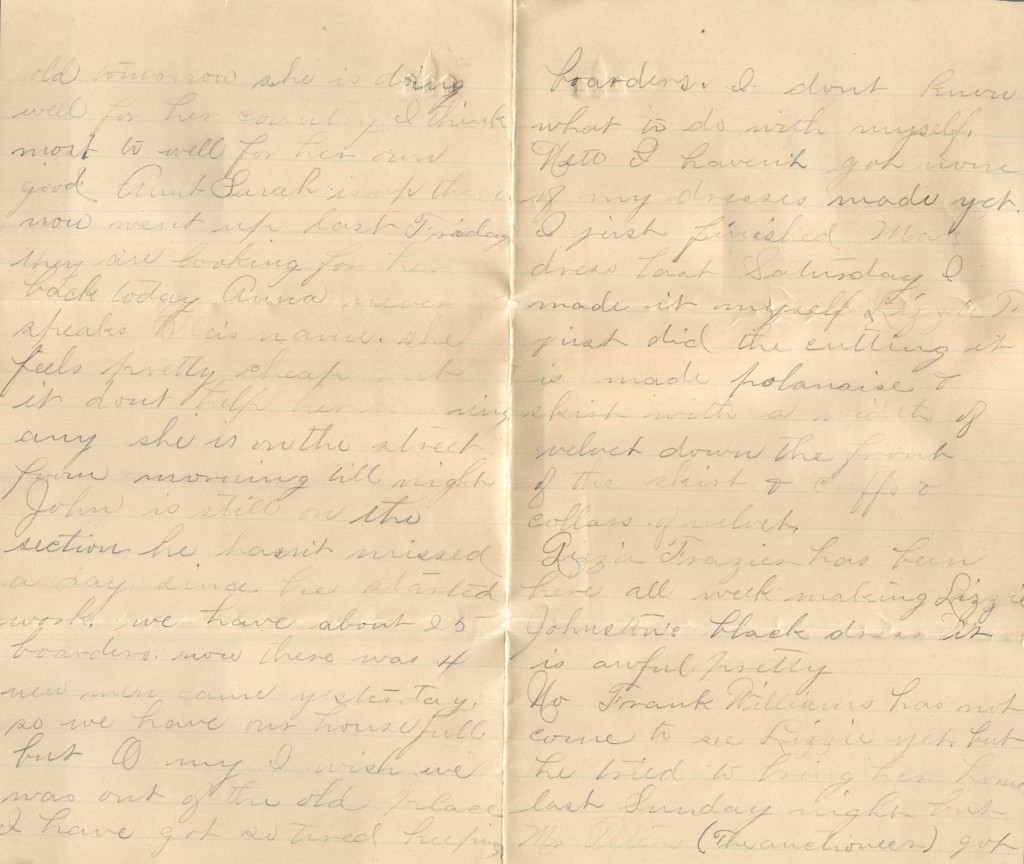 old tomorrow she is doing
well for her country I think
most to well for her own
good Aunt Sarah is up there
now went up last Friday
they are looking for her
back today Anna never
speaks name. she
feels pretty cheap but
it dont help her running
any she is on the street
from morning till night
John is still on the
section he hasnt missed
a day since he started
work. we have about 25
boarders. now there was 4
new men came yestertay,
so we have our house full
but O my I wish we
was out of the old place
I have got so tired keeping
boarders. I dont know
what to do with myself.
Nett I havent got none
of my dresses made yet.
I just finished Mas
dress last Saturday I
made it myself Lizzie F.
just did the cutting it
is made polanaise &
skirt with a width of
velvet down the front
of the skirt & cuffs &
collars of velvet.
Lizzie Frazier has been
here all week making Lizzie
Johnston's black dress it
is awful pretty
No Frank Williams has not
come to see Lizzie yet. but
he tried to bring her home
last Sunday night but
Mr (The auctioneer) got